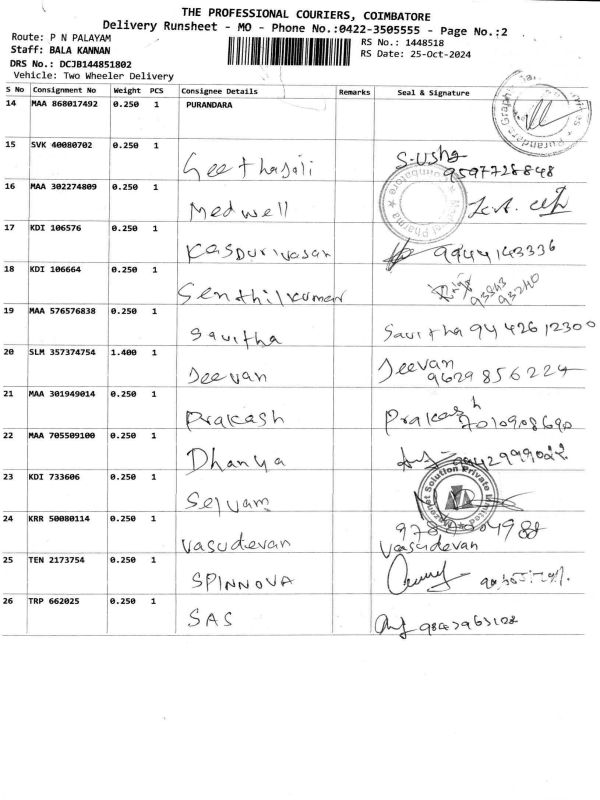 THE PROFESSIONAL COURIERS, COIMBATORE
Delivery Runsheet - MO - Phone No.:0422-3505555 - Page No.:2
Route: P N PALAYAM
RS No.: 1448518
Staff: BALA KANNAN
RS Date: 25-Oct-2024
DRS No.: DCJB144851802
Vehicle: Two Wheeler Delivery
S No Consignment No Weight PCS Consignee Details Remarks Seal & Signature
14 MAA 868017492 0.250 1 PURANDARA
15 SVK 40080702 0.250 1 Geethajali S-Usha 9597728848
16 MAA 302274809 0.250 1 Medwell
17 KDI 106576 0.250 1 Kasdurivasan 9944143336
18 KDI 106664 0.250 1 Senthilkumar 93843 93240
19 MAA 576576838 0.250 1 Savitha Savitha 9442612300
20 SLM 357374754 1.400 1 Jeevan Jeevan 9629856224
21 MAA 301949014 0.250 1 Prakash Prakash 7010908690
22 MAA 705509100 0.250 1 Dhanya
23 KDI 733606 0.250 1 Selvam
24 KRR 50080114 0.250 1 Vasudevan Vasudevan
25 TEN 2173754 0.250 1 SPINNOVA
26 TRP 662025 0.250 1 SAS